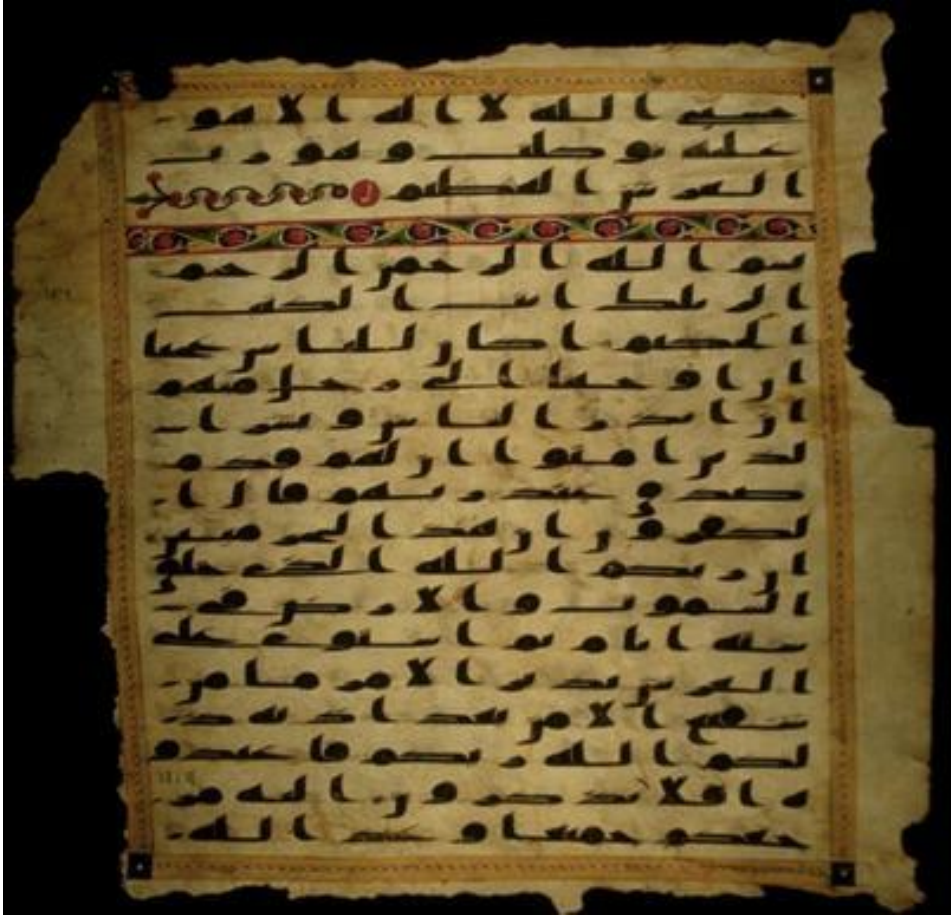 حسبي الله لا اله الا هو
عليه توكلت وهو رب
العرش العظيم
بسم الله الرحمن الرحيم
الر تلك ايت الكتب
الحكيم اكان للناس عجبا
ان اوحينا الى رجل منهم
ان انذر الناس وبشر ا
لذين امنوا ان لهم قدم
صدق عند ربهم قال ا
لكفرون ان هذا لسحر مبين
ان ربكم الله الذي خلق
السموت والارض في
ستة ايام ثم استوى على
العرش يدبر الامر ما من
شفيع الا من بعد اذنه ذ
لكم الله ربكم فاعبدو
ه افلا تذكرون اليه مر
جعكم جميعا وعد الله